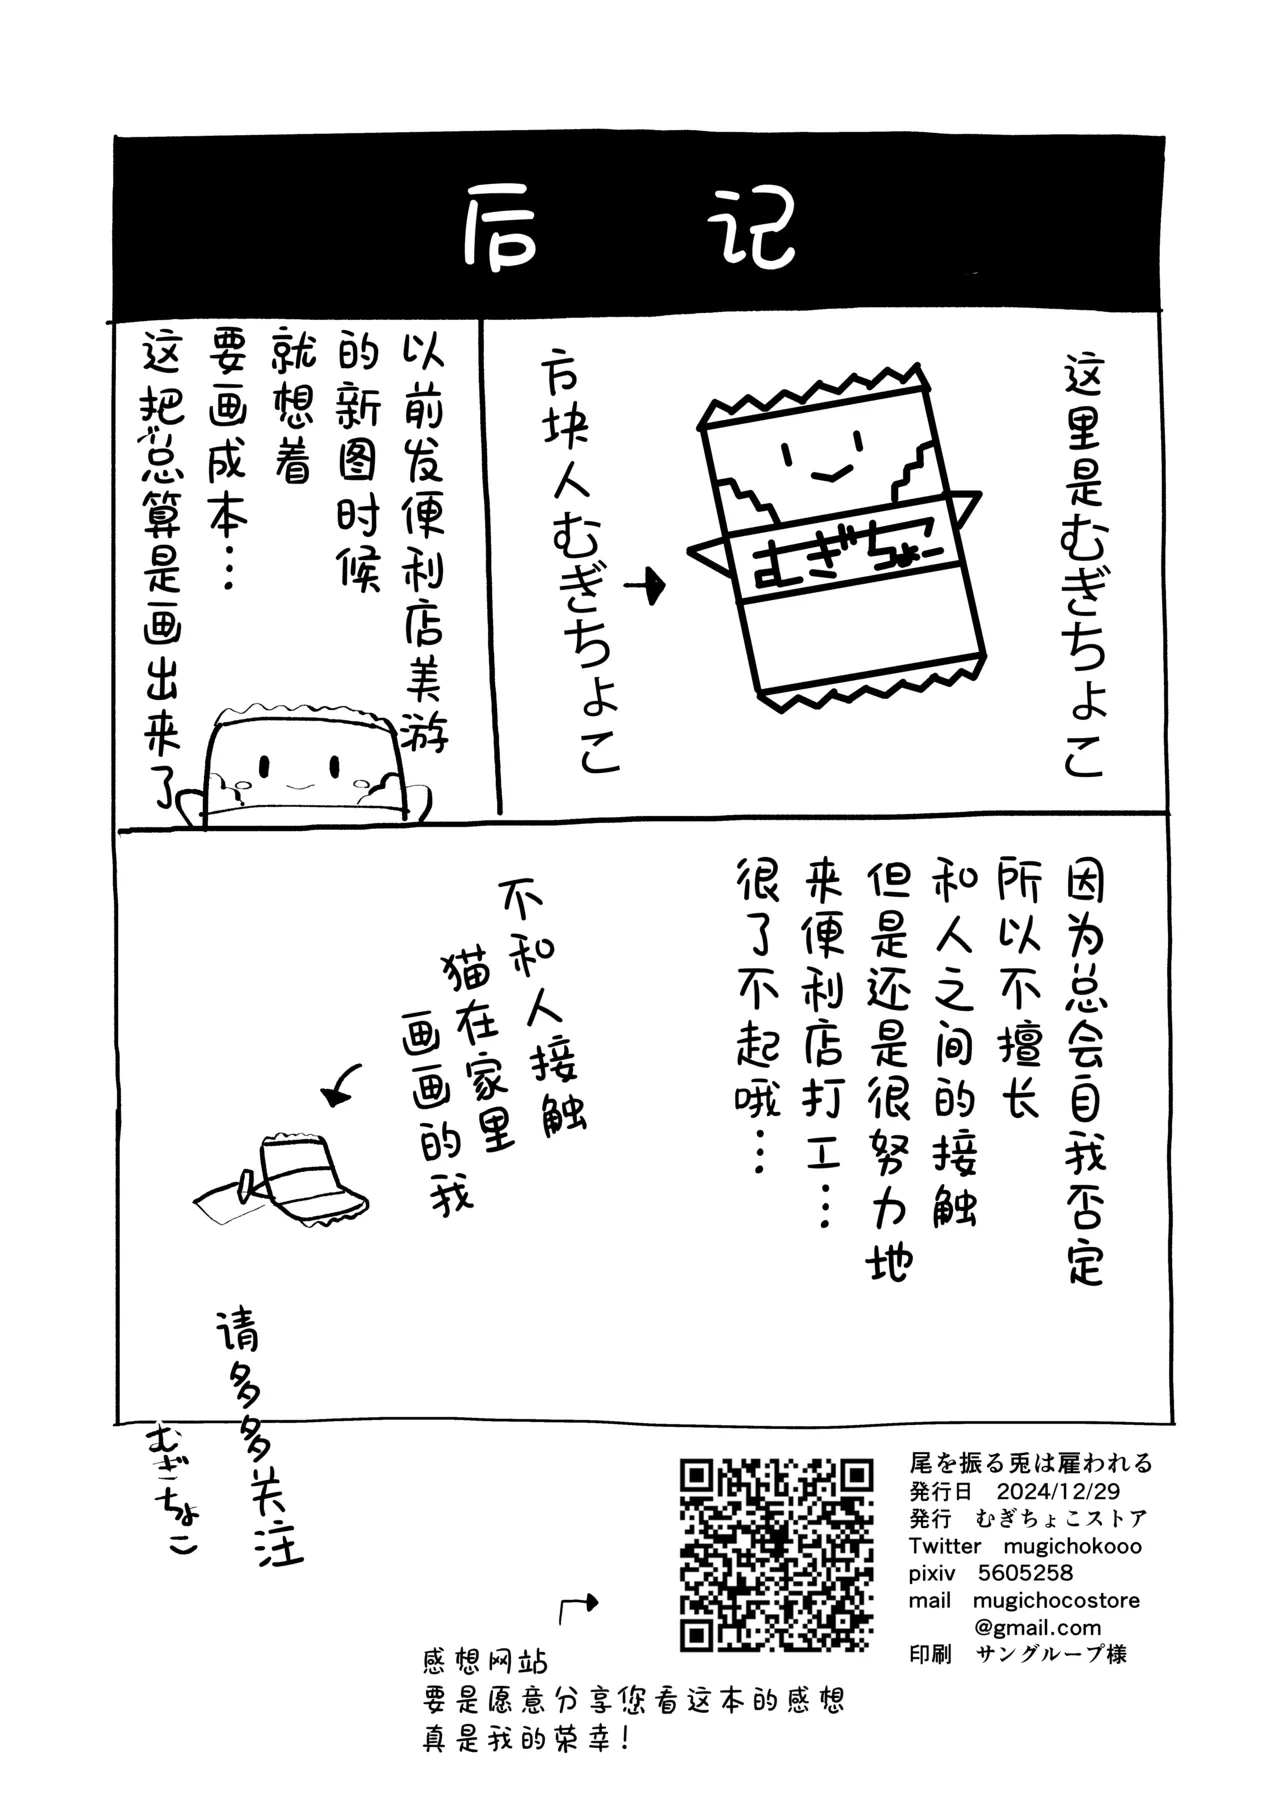 后 记
这里是むぎちょこ
むぎちょこ
方块人むぎちょこ
以前发便利店美游
的新图时候
就想着
要画成本…
这把总算是画出来了
因为总会自我否定
所以不擅长
和人之间的接触
但是还是很努力地
来便利店打工…
很了不起哦…
不和人接触
猫在家里
画画的我
请多多关注
むぎちょこ
感想网站
要是愿意分享您看这本的感想
真是我的荣幸!
尾を振る兎は雇われる
発行日 2024/12/29
発行 むぎちょこストア
Twitter mugichokooo
pixiv 5605258
mail mugichocostore
@gmail.com
印刷 サングループ様